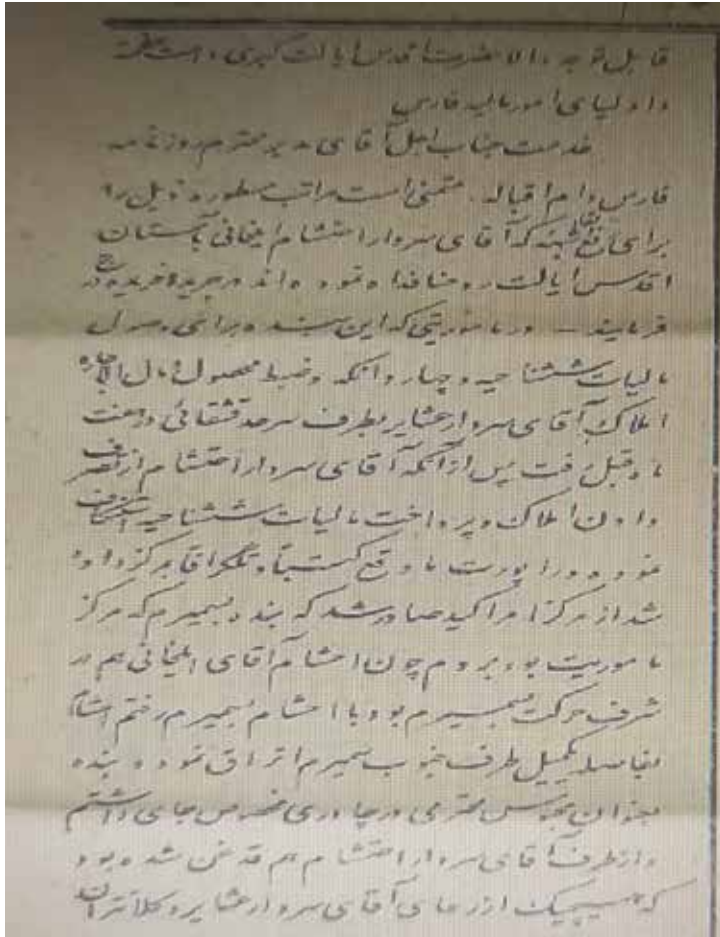 قابل توجه والاحضرت اقدس ایالت کبری دامت عظمته
و اولیای امور مالیه فارس
خدمت جناب اجل آقای مدیر محترم روزنامه
فارس دام اقباله. متمنی است مراتب مسطوره ذیل را
برای رفع شبهه که آقای سردار احتشام ایلخانی بآستان
اقدس ایالت روحنا فداه نموده اند در جریده فریده درج
فرمایند – در مأموریتی که این بنده برای وصول
مالیات ششناحیه و چهاردانگه و ضبط محصول مال الاجاره
املاک آقای سردار عشایر بطرف سرحد قشقائی داشت
ماه قبل رفت پس از آنکه آقای سردار احتشام از تصرف
دادن املاک و پرداخت مالیات ششناحیه استنکاف
نموده و راپورت ماوقع کتباً و تلگرافاً بمرکز داده
شد از مرکز امر اکید صادر شد که بنده بسمیرم که مرکز
مأموریت بود بروم چون احشام آقای ایلخانی هم در
شرف حرکت بسمیرم بود با احشام بسمیرم رفتم احشام
بفاصله یکمیل طرف جنوب سمیرم اتراق نمود و بنده
بعنوان محبوس محترمی در چادری مخصوص جای داشتم
و از طرف آقای سردار احتشام هم قدغن شده بود
که هیچیک از رعایای آقای سردار عشایر و کلانتران